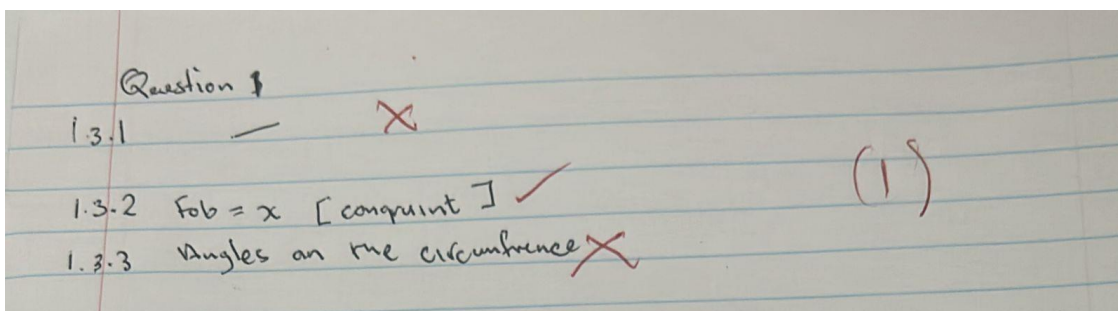 Question 1
1.3.1 —
1.3.2 Fob = x [conqruint] (1)
1.3.3 Angles on the circumfrence